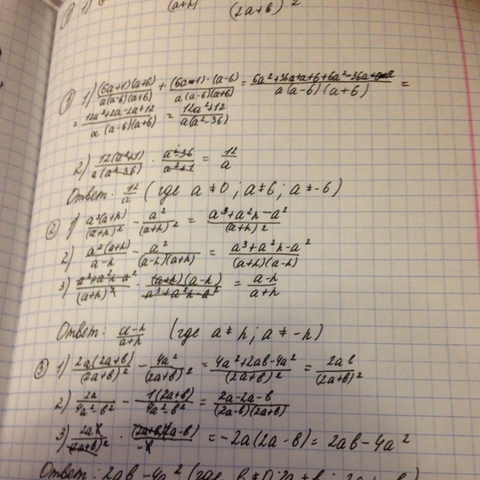 ① 1) (6a+1)(a+6)/a(a-6)(a+6) + (6a-1)·(a-6)/a(a-6)(a+6) = 6a²+36a+a+6+6a²-36a+a+6/a(a-6)(a+6) =
= 12a²+2a-2a+12/a(a-6)(a+6) = 12a²+12/a(a²-36)
2) 12(a²+1)/a(a²-36) · a²-36/a²+1 = 12/a
Ответ: 12/a (где a≠0; a≠6; a≠-6)
② 1) a²(a+n)/(a+n)² - a²/(a+n)² = a³+a²n-a²/(a+n)²
2) a²(a+n)/a-n - a²/(a-n)(a+n) = a³+a²n-a²/(a+n)(a-n)
3) a³+a²n-a²/(a+n)² · (a+n)(a-n)/a³+a²n-a² = a-n/a+n
Ответ: a-n/a+n (где a≠n; a≠-n)
③ 1) 2a(2a+b)/(2a+b)² - 4a²/(2a+b)² = 4a²+2ab-4a²/(2a+b)² = 2ab/(2a+b)²
2) 2a/4a²-b² - 1(2a+b)/4a²-b² = 2a-2a-b/(2a-b)(2a+b)
3) 2ab/(2a+b)² · (2a+b)(2a-b)/-b = -2a(2a-b) = 2ab-4a²
Ответ: 2ab-4a² (где b≠0;